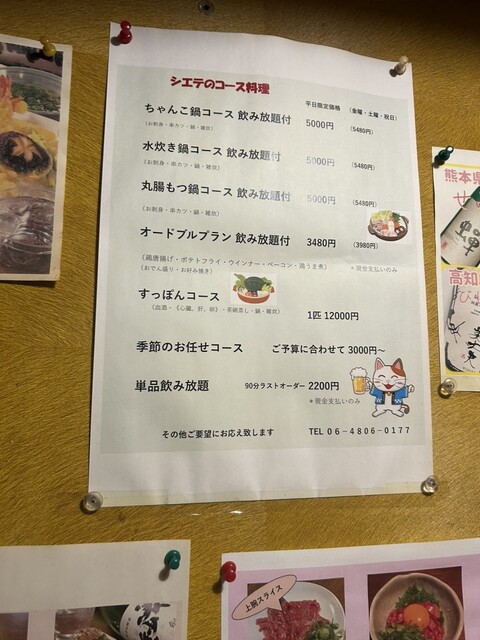 シエテのコース料理
平日限定価格 （金曜・土曜・祝日）
ちゃんこ鍋コース 飲み放題付 5000円 （5480円）
（お刺身・串カツ・鍋・雑炊）
水炊き鍋コース 飲み放題付 5000円 （5480円）
（お刺身・串カツ・鍋・雑炊）
丸腸もつ鍋コース 飲み放題付 5000円 （5480円）
（お刺身・串カツ・鍋・雑炊）
オードブルプラン 飲み放題付 3480円 （3980円）
（鶏唐揚げ・ポテトフライ・ウインナー・ベーコン・鶏うま煮）
（おでん盛り・お好み焼き） ＊現金支払いのみ
すっぽんコース 1匹 12000円
（血酒・《心臓、肝、卵》・茶碗蒸し・鍋・雑炊）
季節のお任せコース ご予算に合わせて 3000円～
単品飲み放題 90分ラストオーダー 2200円
＊現金支払いのみ
その他ご要望にお応え致します TEL 06－4806－0177
熊本県
せ
蝉
高知
上胴スライス